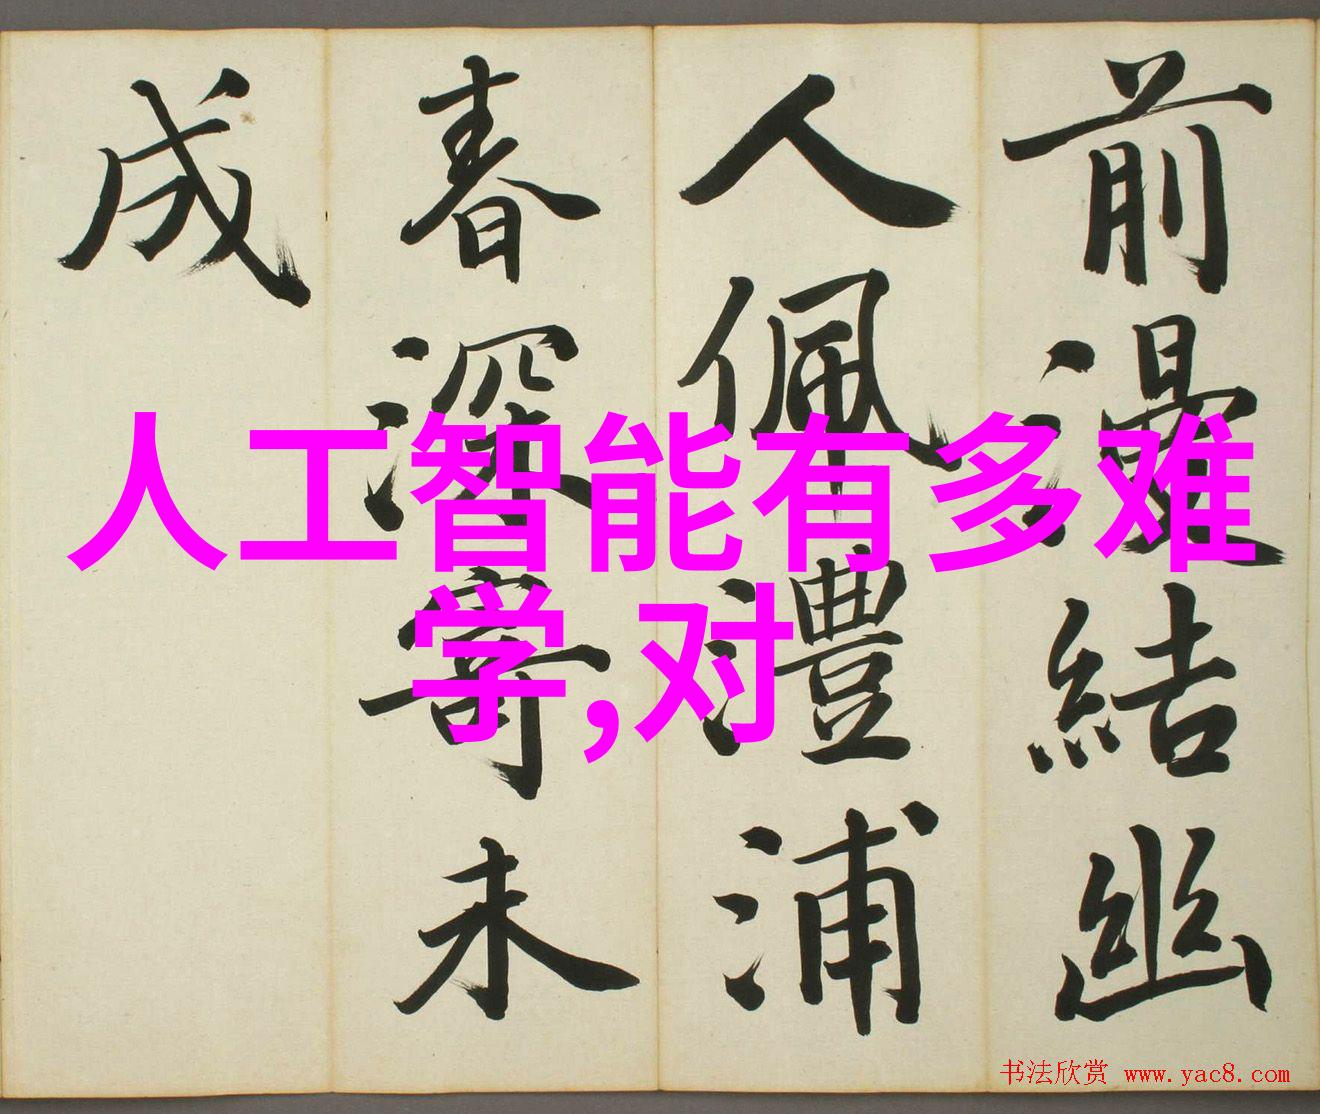 前漫結幽
人佩澧浦
春深寄未
成
人工智能有多难
学,对
书法欣赏 www.yac8.com